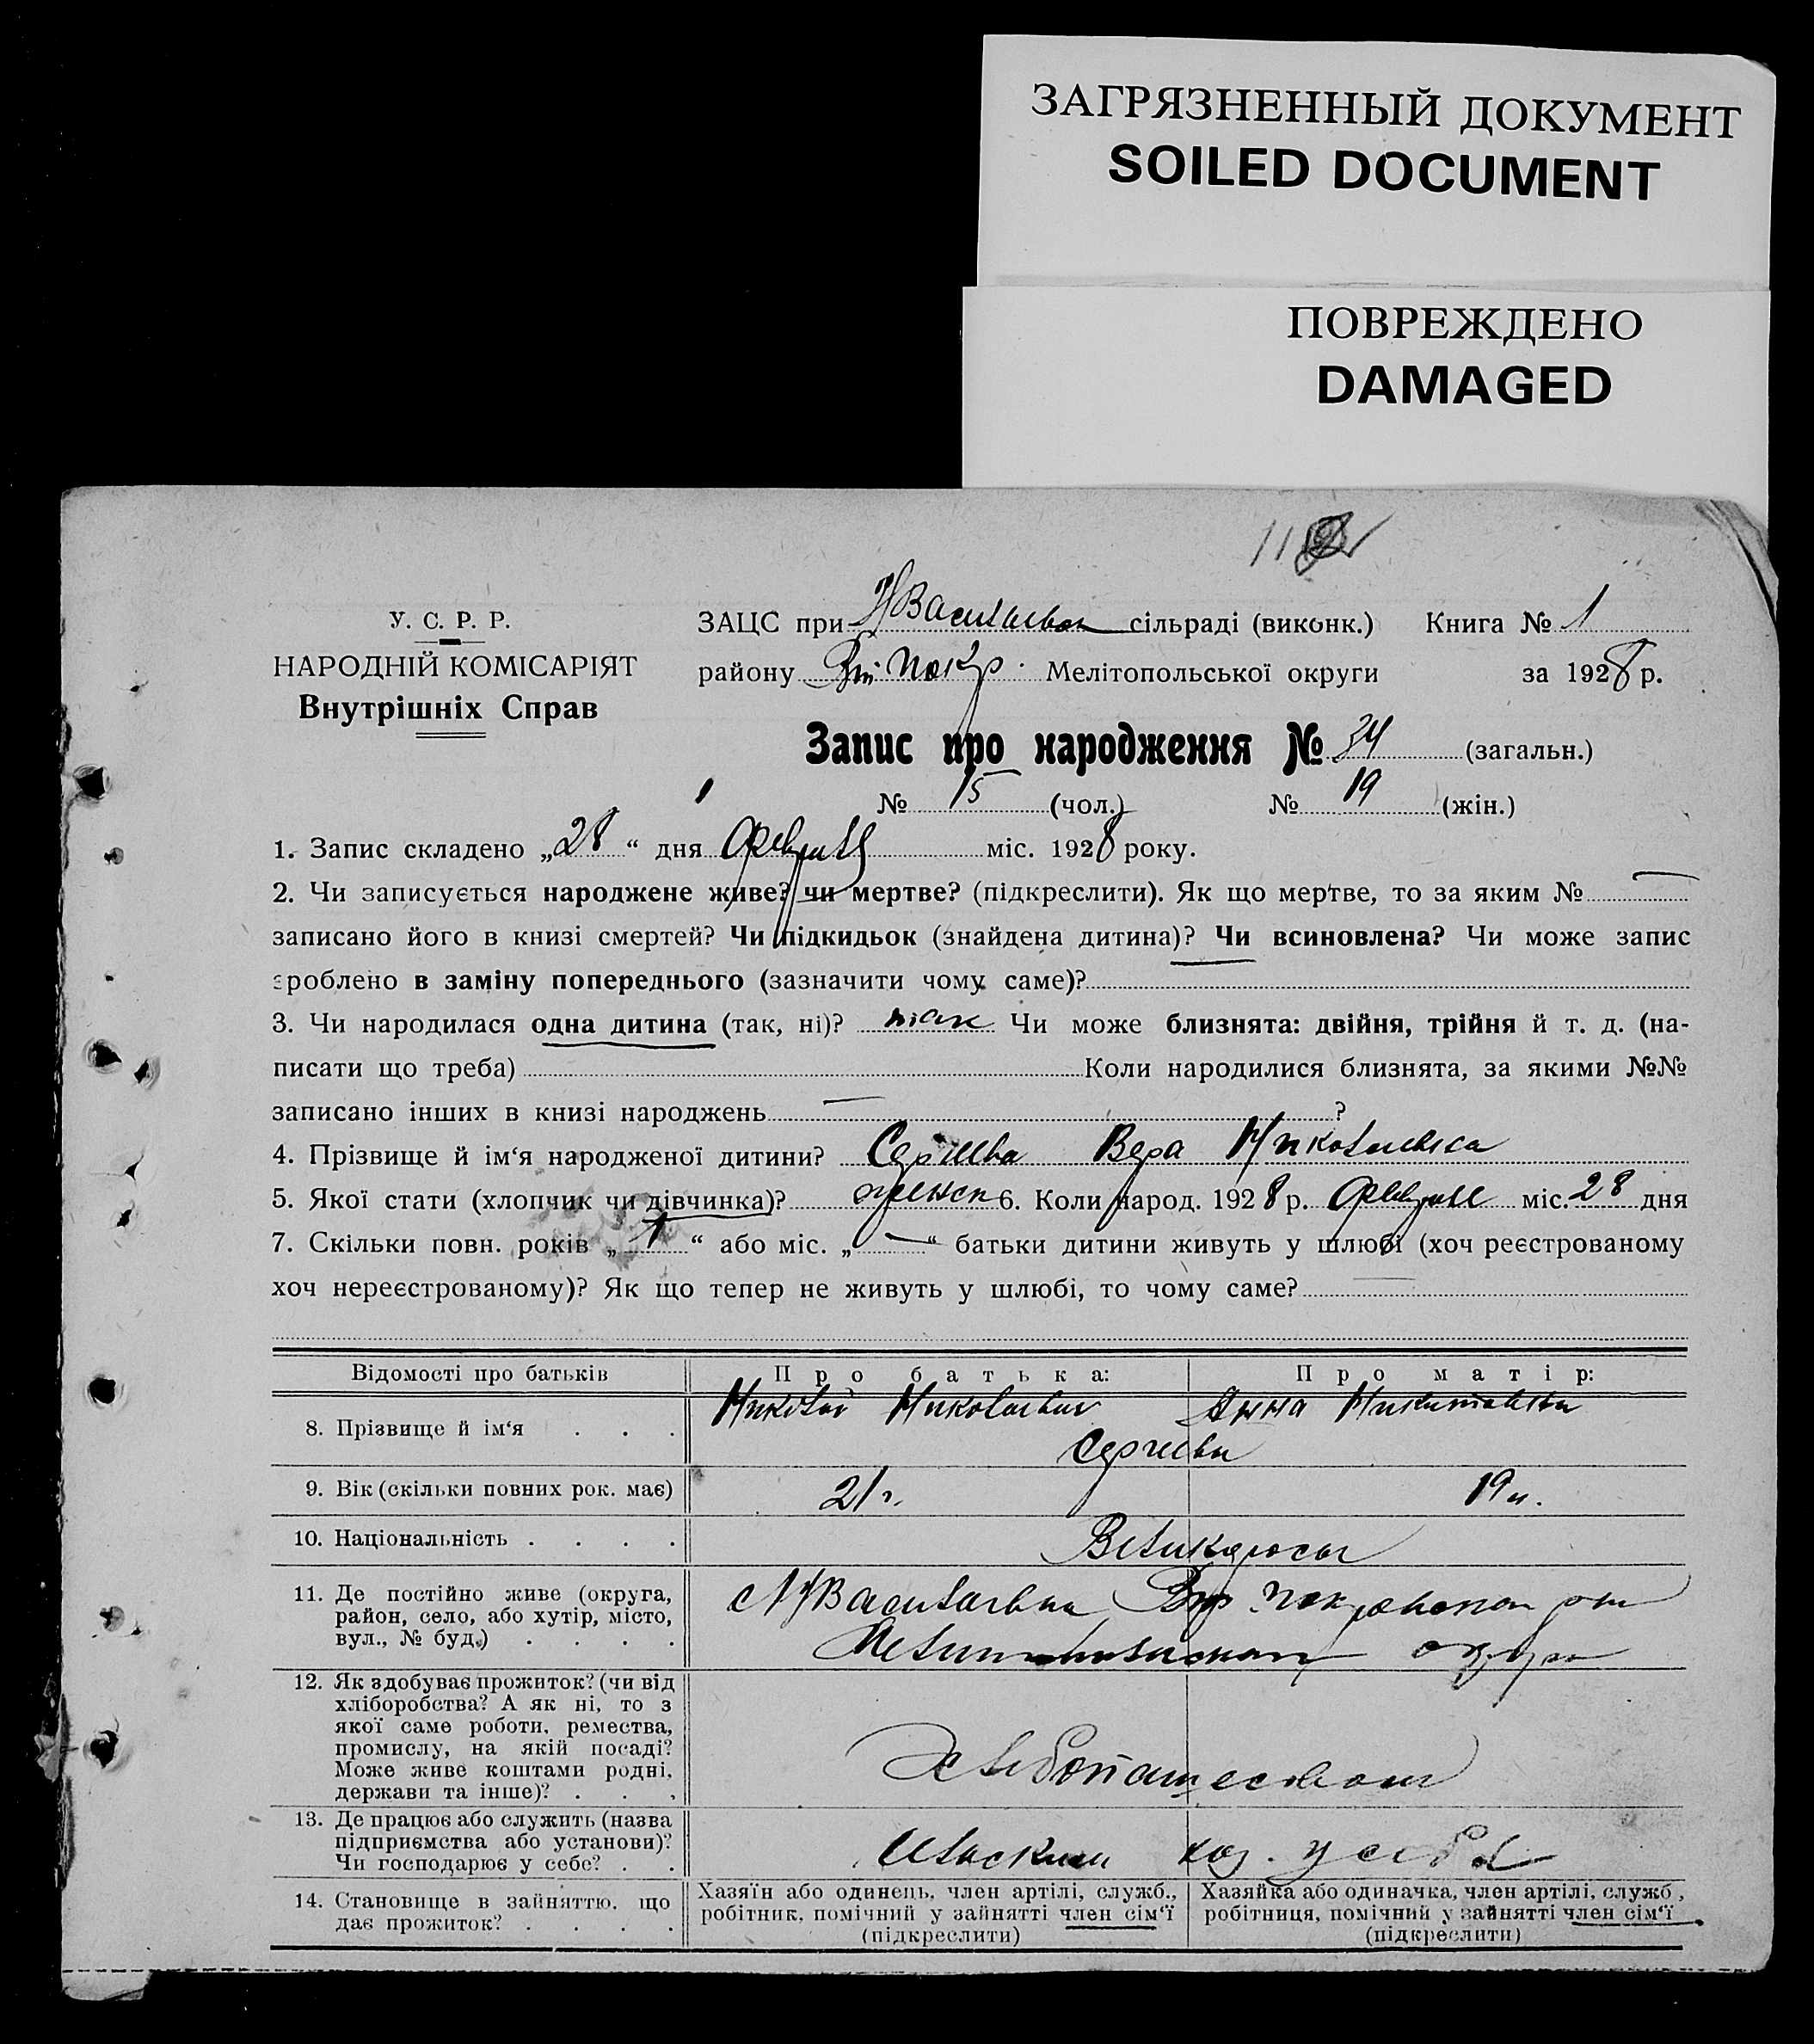 ЗАГРЯЗНЕННЫЙ ДОКУМЕНТ
SOILED DOCUMENT
ПОВРЕЖДЕНО
DAMAGED
11
У. С. Р. Р.
НАРОДНІЙ КОМІСАРІЯТ
Внутрішніх Справ
ЗАЦС при НВасильевск сільраді (виконк.) Книга № 1
району Вт. Покр. Мелітопольської округи за 1928 р.
Запис про народження № 34 (загальн.)
№ 15 (чол.) № 19 (жін.)
1. Запис складено „28“ дня февраля міс. 1928 року.
2. Чи записується народжене живе? чи мертве? (підкреслити). Як що мертве, то за яким № —
записано його в книзі смертей? Чи підкидьок (знайдена дитина)? Чи всиновлена? Чи може запис
зроблено в заміну попереднього (зазначити чому саме)?
3. Чи народилася одна дитина (так, ні)? так Чи може близнята: двійня, трійня й т. д. (на-
писати що треба) Коли народилися близнята, за якими №№
записано інших в книзі народжень — ?
4. Прізвище й ім‘я народженої дитини? Сергеева Вера Николаевна
5. Якої стати (хлопчик чи дівчинка)? женск 6. Коли народ. 1928 р. феврале міс. 28 дня
7. Скільки повн. років „1“ або міс. „—“ батьки дитини живуть у шлюбі (хоч реєстрованому
хоч нереєстрованому)? Як що тепер не живуть у шлюбі, то чому саме? —
Відомості про батьків Про батька: Про матір:
8. Прізвище й ім‘я . . . Николай Николаевич Анна Никитовна
Сергеевы
9. Вік (скільки повних рок. має) 21 г. 19 л.
10. Національність . . . . Великоросы
11. Де постійно живе (округа,
район, село, або хутір, місто,
вул., № буд.) . . . .
НВасильевка Втр. Покровского рна
Мелитопольского округа
12. Як здобуває прожиток? (чи від
хліборобства? А як ні, то з
якої саме роботи, ремества,
промислу, на якій посаді?
Може живе коштами родні,
держави та інше)? . . .
Хлебопашеством
13. Де працює або служить (назва
підприємства або установи)?
Чи господарює у себе? . .
хоз. у себя
14. Становище в зайняттю, що
дає прожиток? . . . .
Хазяїн або одинець, член артілі, служб.,
робітник, помічний у зайнятті член сім‘ї
(підкреслити)
Хазяйка або одиначка, член артілі, служб,
робітниця, помічний у зайнятті член сім‘ї
(підкреслити)